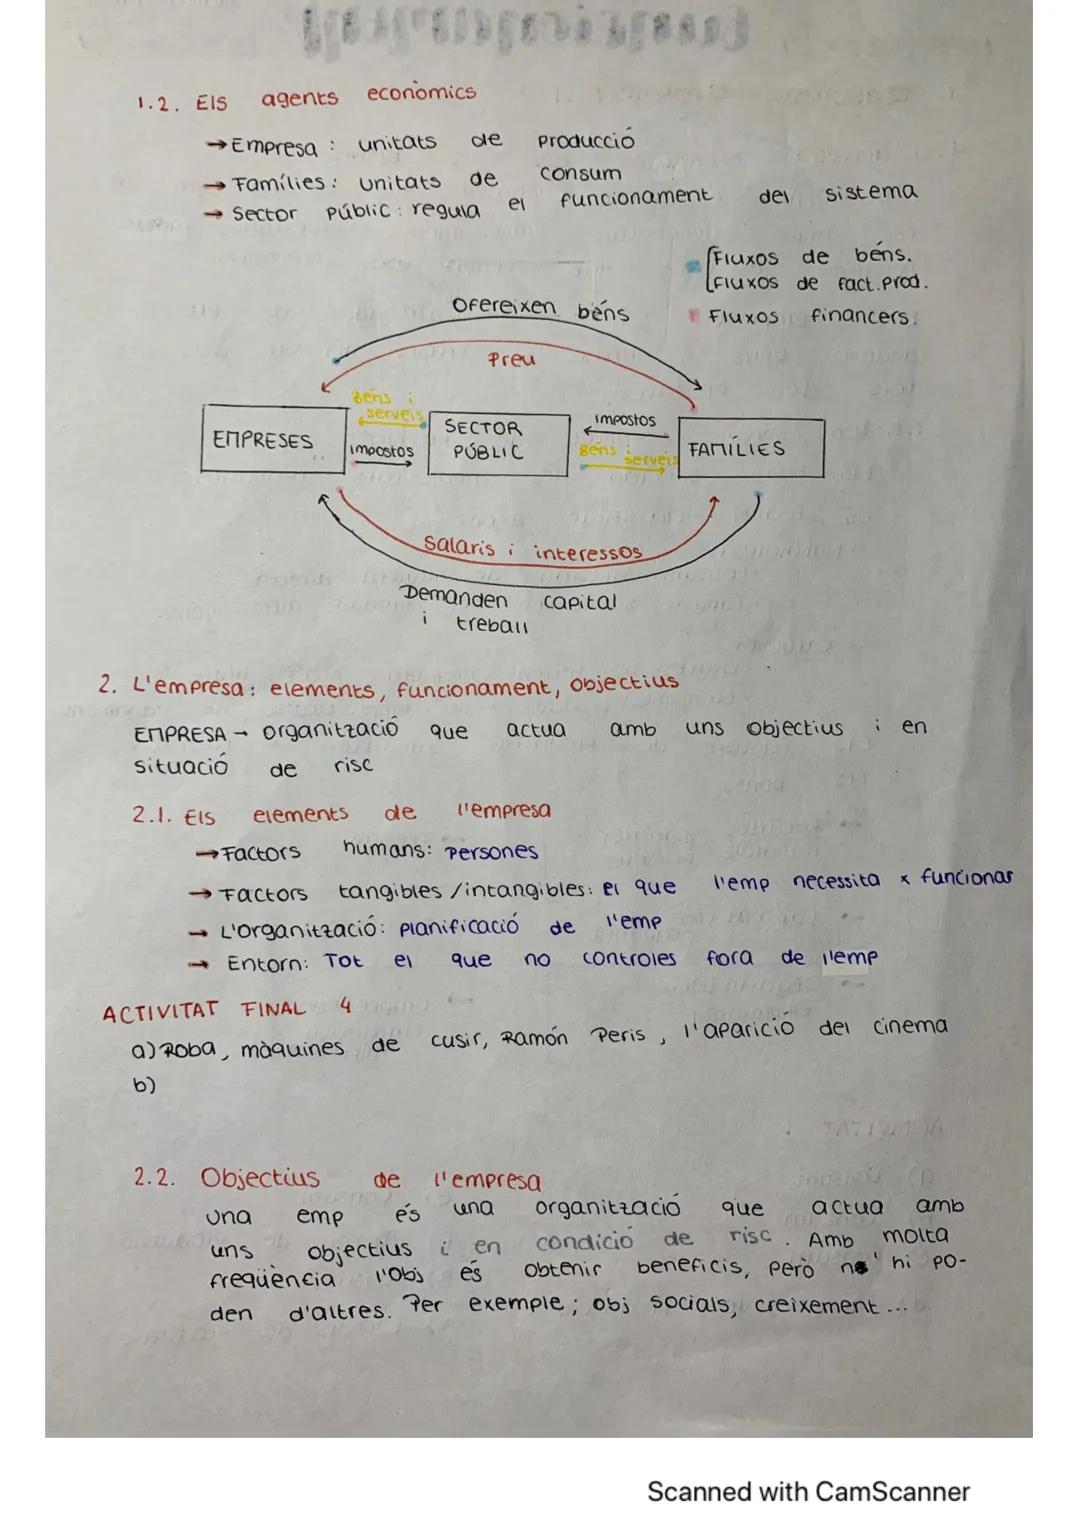 1.2. Els agents econòmics
→ Empresa: unitats de producció
→ Famílies: unitats de consum
→ Sector públic: regula el funcionament del sistema
Fluxos de béns.
Fluxos de fact. prod.
Fluxos financers.
Ofereixen béns
Preu
Béns i serveis
EMPRESES
impostos
SECTOR PÚBLIC
impostos
Béns i serveis
FAMÍLIES
Salaris i interessos
Demanden capital
i treball
2. L'empresa: elements, funcionament, objectius
EMPRESA → organització que actua amb uns objectius i en
situació de risc
2.1. Els elements de l'empresa
→ Factors humans: persones
→ Factors tangibles/intangibles: el que l'emp necessita x funcionar
→ L'organització: planificació de l'emp
→ Entorn: Tot el que no controles fora de l'emp
ACTIVITAT FINAL 4
a) Roba, màquines de cusir, Ramón Peris, l'aparició del cinema
b)
2.2. Objectius de l'empresa
Una emp és una organització que actua amb
uns objectius i en condició de risc. Amb molta
freqüència l'obj és obtenir beneficis, però n' hi po-
den d'altres. Per exemple; obj socials, creixement...
Scanned with CamScanner